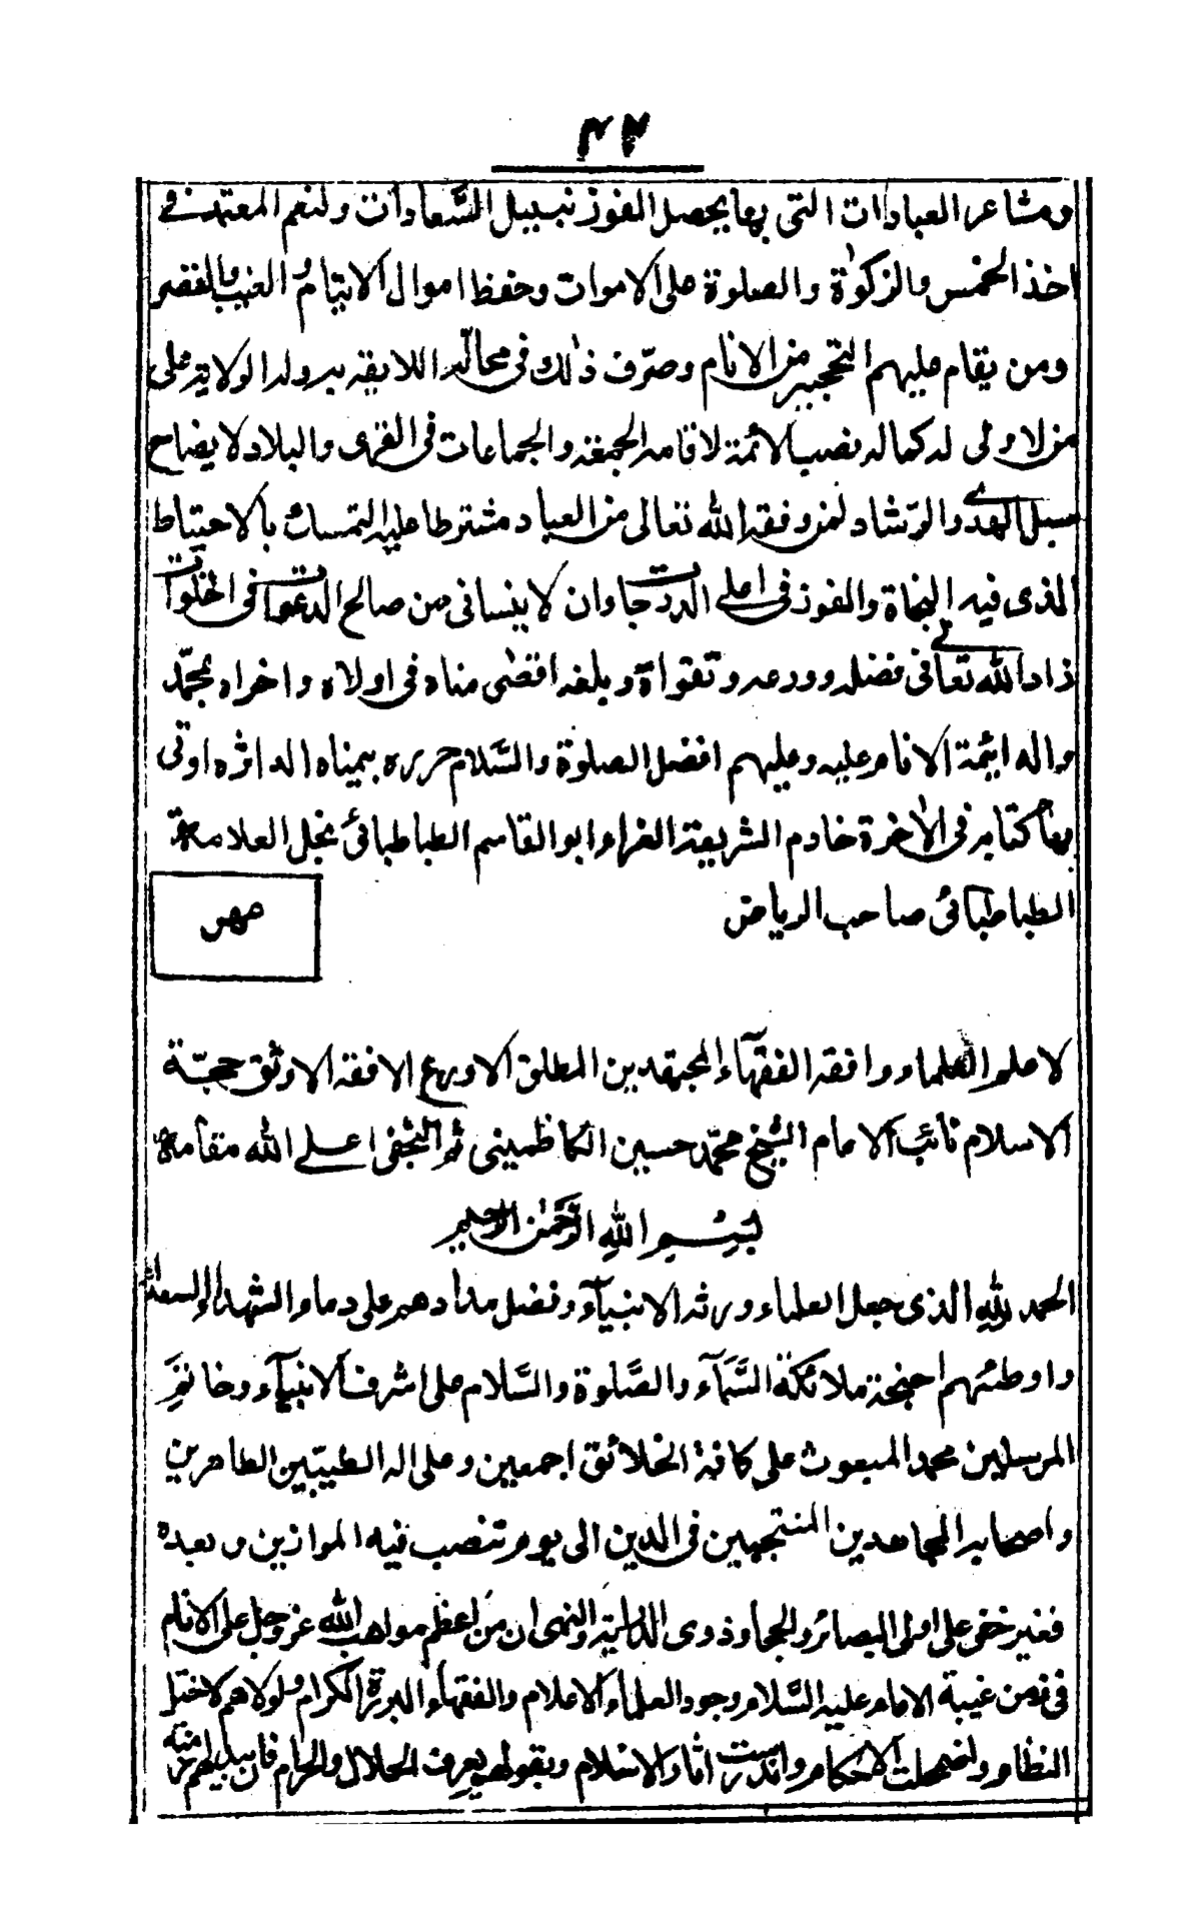 ٤٢
ومشاعر العبادات التى بها يحصل الفوز بسبيل السَّعادات ولنعم المعتمد فے
اخذ الخمس والزكوٰة والصلوة على الاموات وحفظ اموال الايتام والغيب والقصر
ومن يقام عليهم التحجير من الانام وصرّف ذٰلك فى محالّه اللايقه به وله الولاية على
من لا ولى له كما له نصب الائمة لاقامه الجمعه والجماعات فى القرى والبلاد لايضاح
سبل الهدے والرّشاد لمن وفقه الله تعالى من العباد مشترطا عليه التمسك بالاحتياط
الذى فيه النجاة والفوز فى اعلے الدرجات وان لا ينسانى من صالح الدعوات فى الخلوات
زاد الله تعالے فى فضله وورعه وتقواه وبلغه اقصٰى مناه فى اولاه واخراه بمحمّد
واله ائمة الانام عليه وعليهم افضل الصلوة والسَّلام حرره بيمناه الداثره اوتى
بها كتابه فى الاٰخرة خادم الشريعة الغراء ابو القاسم الطباطبائى نجل العلامة
الطباطبائى صاحب الرياض
مهر
لاعلم العلماء وافقه الفقهاء المجتهدين المطلق الاورع الافقه الاوثق حجّة
الاسلام نائب الامام الشيخ محمّد حسين الكاظمينى ثم النجفى اعلے الله مقامه
بسم الله الرّحمٰن الرحيم
الحمد لله الذى جعل العلماء ورثه الانبيآء وفضل مدادهم على دماء الشهداء السعداء
واوطئهم اجنحة ملائكة السَّمآء والصَّلوة والسَّلام على اشرف الانبيآء وخاتم
المرسلين محمد المبعوث على كافة الخلائق اجمعين وعلى اله الطيّبين الطاهرين
واصحابه المجاهدين المنتجبين فى الدين الى يوم تنصب فيه الموازين وبعده
فغير خفى على اولى البصائر والحجا وذوى الدراية والنهى ان من اعظم مواهب الله عز وجل على الانام
فى زمن غيبة الامام عليه السَّلام وجود العلماء الاعلام والفقهاء البررة الكرام ولولاهم لاختل
النظام واضمحلت الاحكام واندرست اثار الاسلام وبقولهم يعرف الحلال والحرام فان بيليهم